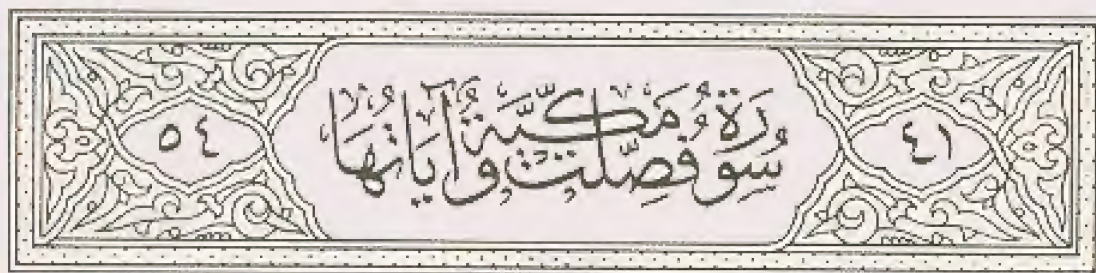 ٤١
سُورَةُ فُصِّلَتْ مَكِّيَّةٌ وَآيَاتُهَا
٥٤